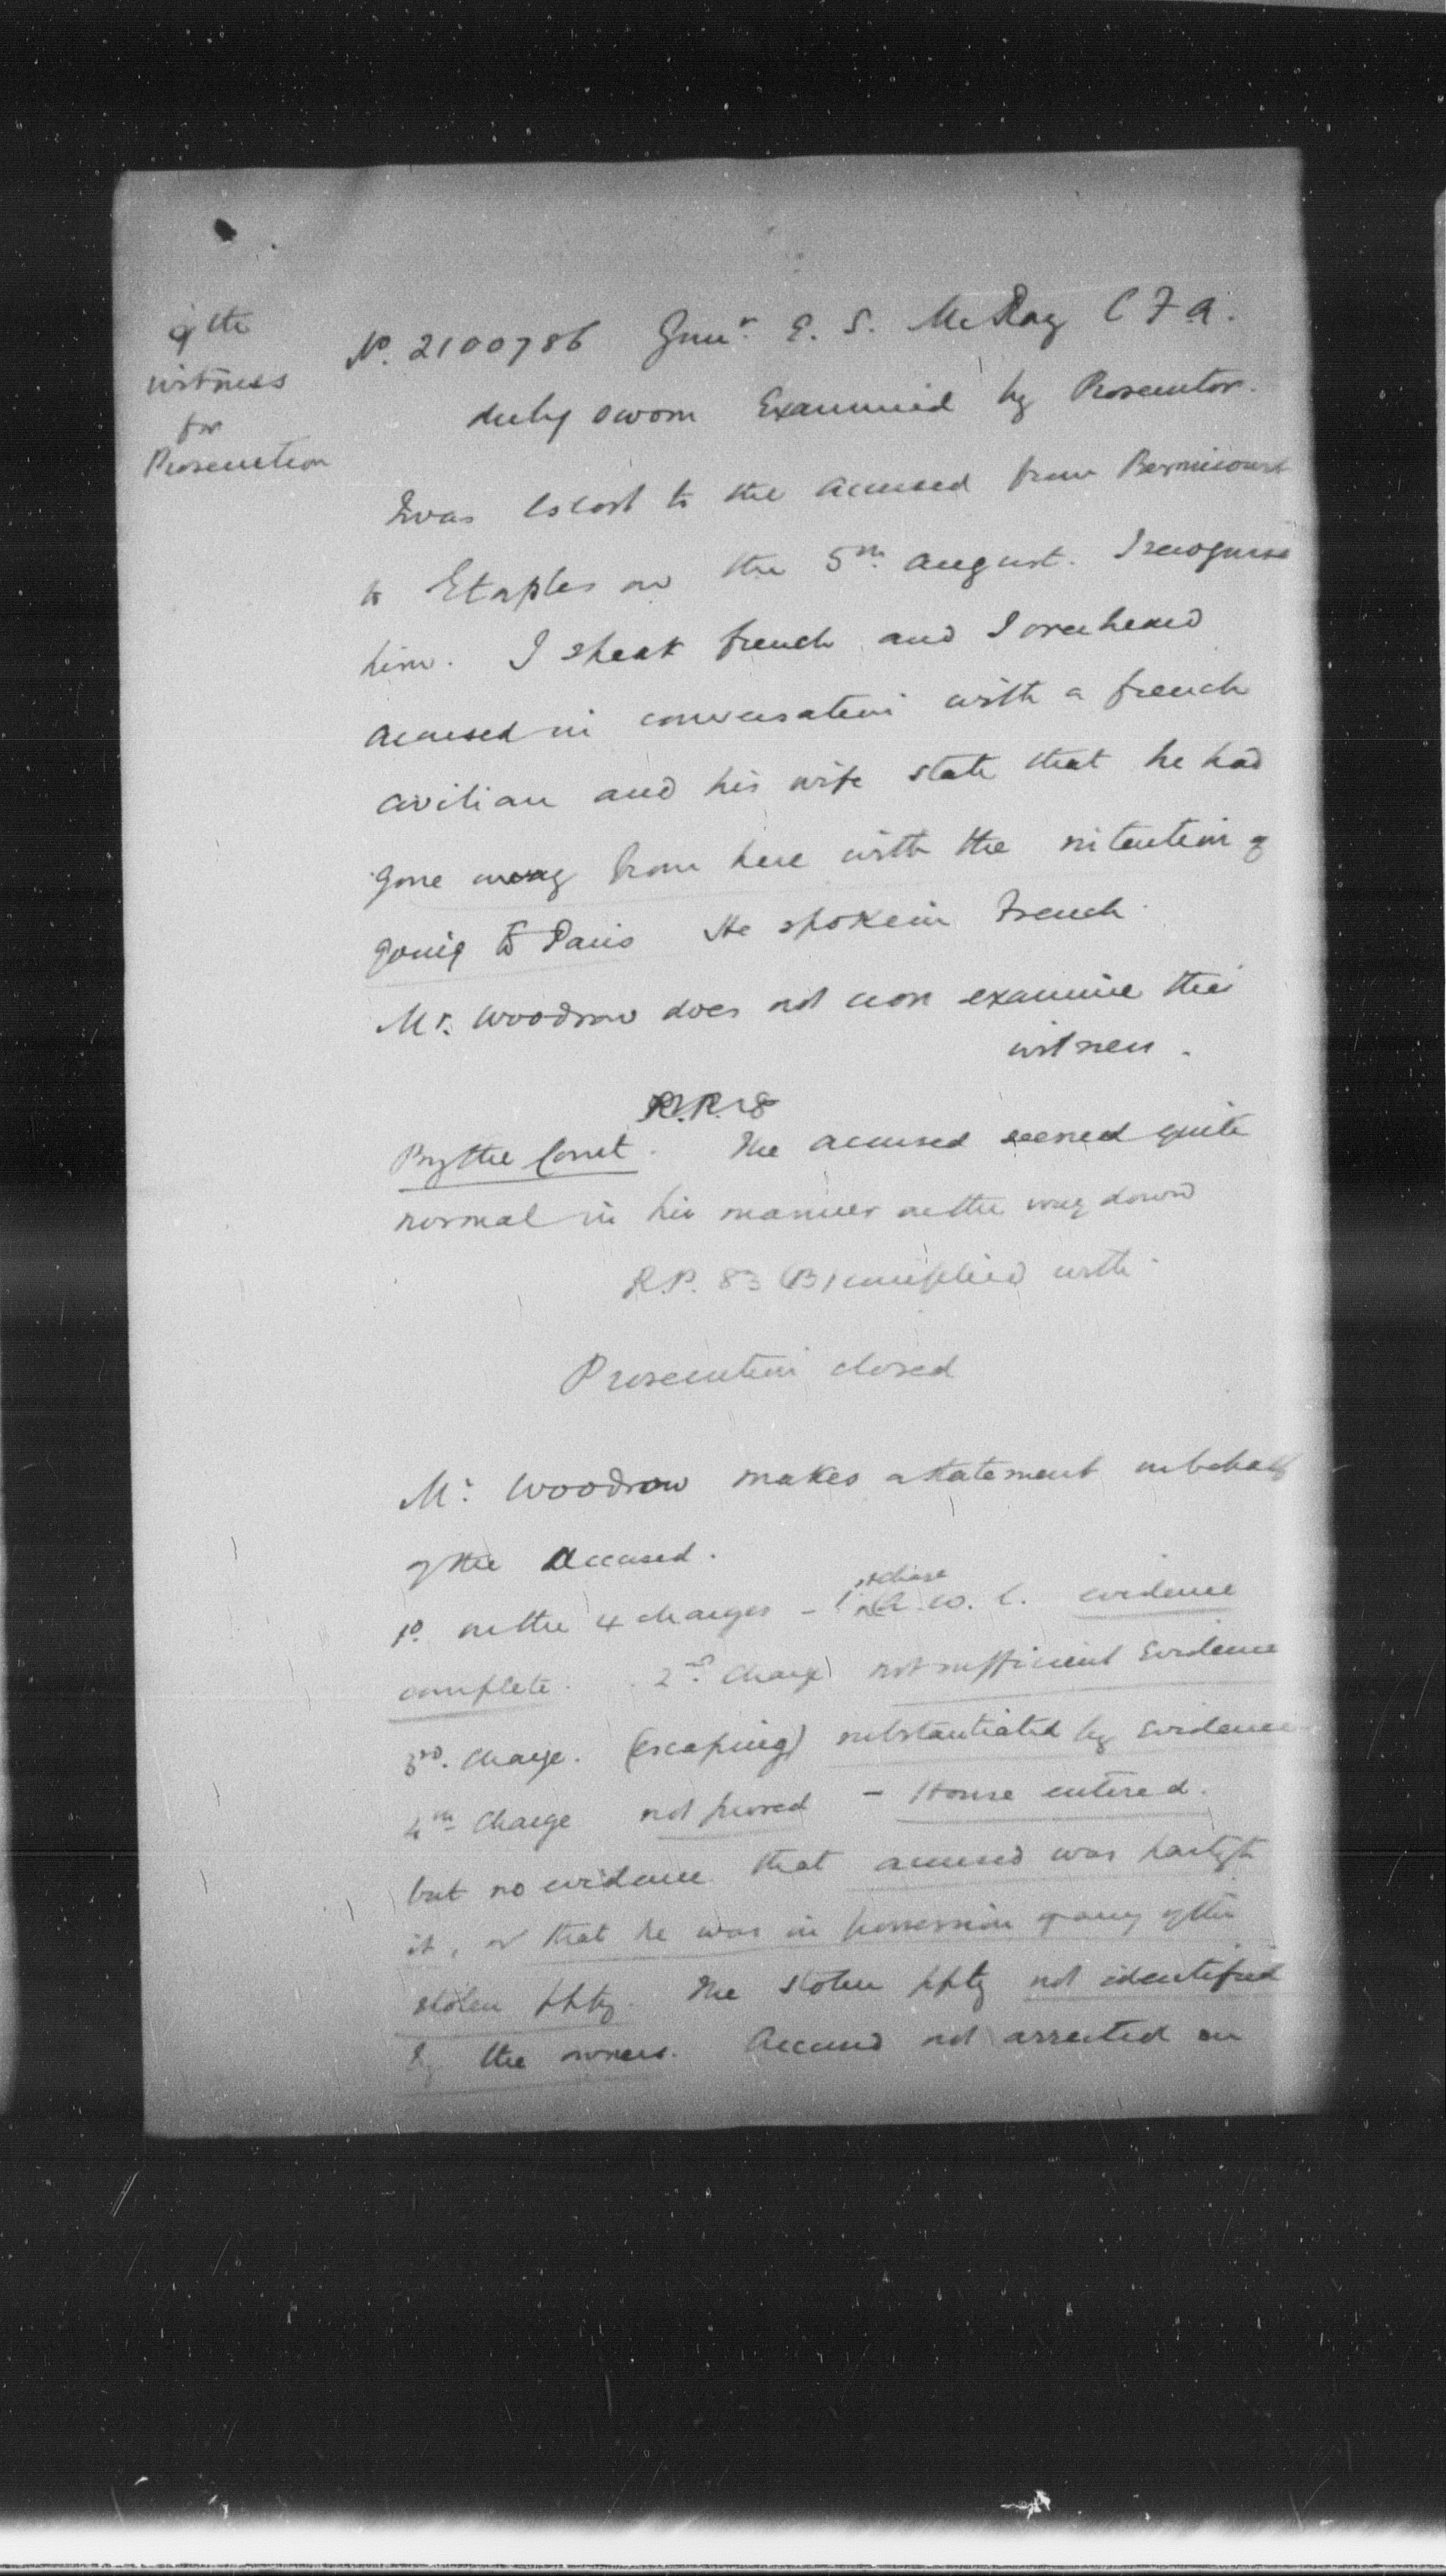 9th
witness
for
Prosecution
No. 2100786 Gnnr. E. S. McKay C F A.
duly sworn Examined by Prosecutor.
I was Escort to the accused from Bermicourt
to Etaples on the 5th August. I recognise
him. I speak french and I overheard
accused in conversation with a french
civilian and his wife state that he had
gone away from here with the intention of
going to Paris He spoke in French.
Mr. Woodrow does not cross examine this
witness.
By the Court. The accused seemed quite
normal in his manner on the way down
R.P. 83 (B) complied with.
Prosecution closed
Mr. Woodrow makes a statement on behalf
of the Accused.
1o. on the 4 charges - 1st charge A. W. L. evidence
complete. 2nd. Charge not sufficient Evidence
3rd. Charge. (escaping) substantiated by Evidence
4th Charge not proved - House entered.
but no evidence that accused was party to
it, or that he was in possession of any of the
stolen ppty. The stolen ppty not identified
by the owners. Accused not arrested on